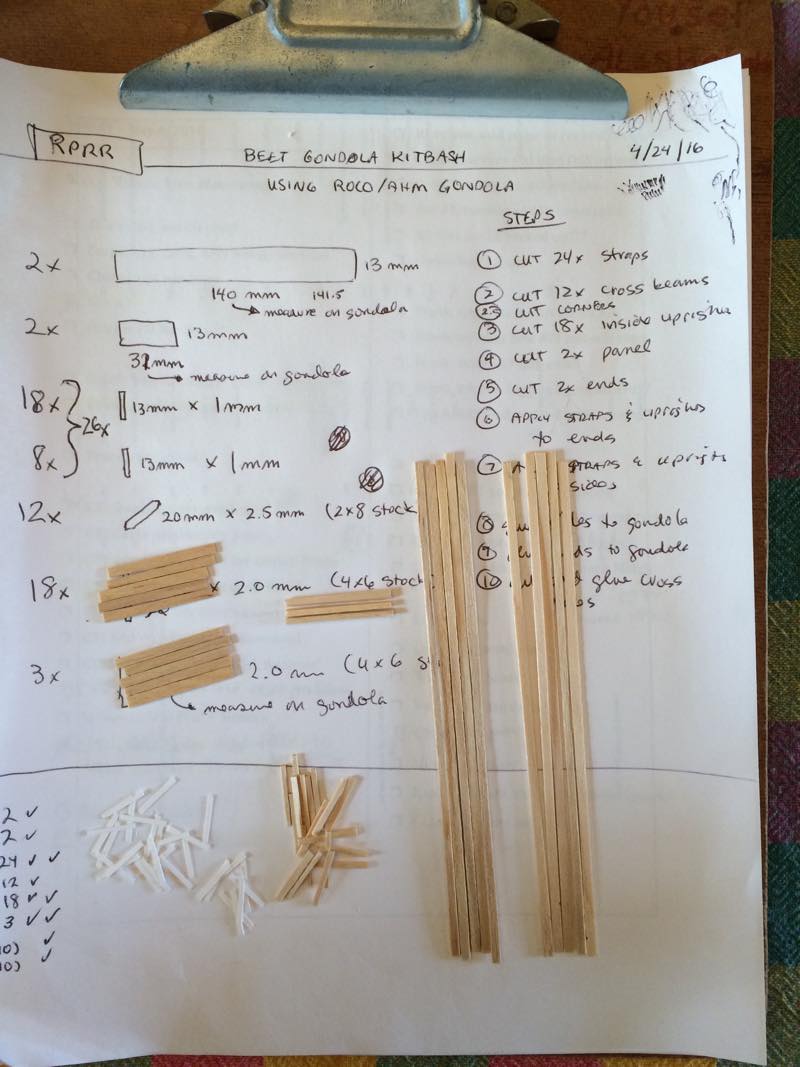 RPRR
BEET GONDOLA KITBASH
4/24/16
USING ROCO/AHM GONDOLA
2x
13 mm
140 mm 141.5
measure on gondola
2x
13mm
measure on gondola
18x
26x
13mm x 1mm
8x
13mm x 1mm
12x
20mm x 2.5mm (2x8 stock
18x
x 2.0 mm (4x6 stock
3x
2.0 mm (4x6 s
measure on gondola
STEPS
1 CUT 24x straps
2 CUT 12x cross beams
2.5 CUT CORNERS
3 CUT 18x inside uprights
4 CUT 2x panel
5 CUT 2x ends
6 APPLY STRAPS & uprights
to ends
7 A STRAPS & uprights
sides
8 to gondola
9 to gondola
10 glue cross
2 ✓
2 ✓
24 ✓ ✓
12 ✓
18 ✓ ✓
3 ✓ ✓
✓
✓